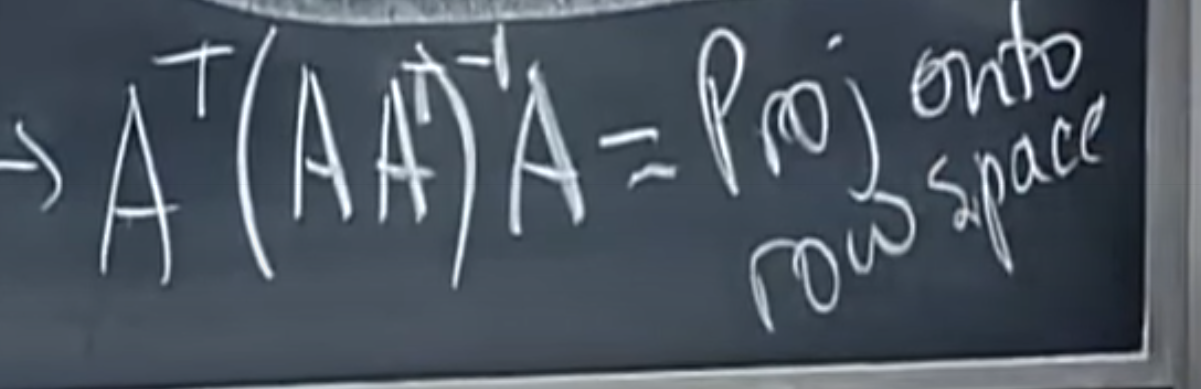 → Aᵀ(AAᵀ)⁻¹A = Proj onto
row space